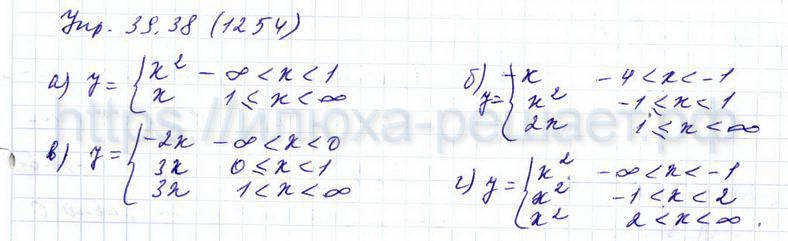 Упр. 39.38 (1254)
а) y = { x² -∞ < x < 1
x 1 ≤ x < ∞
б) y = { -x -4 < x < -1
x² -1 ≤ x < 1
2x 1 ≤ x < ∞
в) y = { -2x -∞ < x < 0
3x 0 ≤ x < 1
3x 1 < x < ∞
г) y = { x² -∞ < x < -1
x² -1 < x < 2
x² 2 < x < ∞.
https://илюха-решает.рф